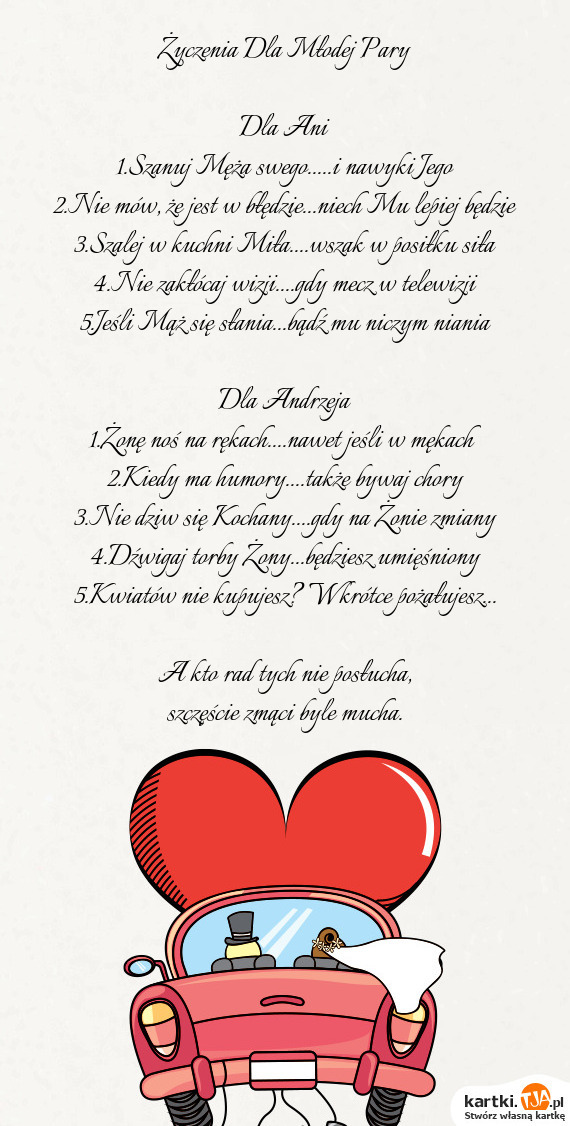 Życzenia Dla Młodej Pary
Dla Ani
1.Szanuj Męża swego.....i nawyki Jego
2.Nie mów, że jest w błędzie...niech Mu lepiej będzie
3.Szalej w kuchni Miła....wszak w posiłku siła
4.Nie zakłócaj wizji....gdy mecz w telewizji
5.Jeśli Mąż się słania...bądź mu niczym niania
Dla Andrzeja
1.Żonę noś na rękach....nawet jeśli w mękach
2.Kiedy ma humory....także bywaj chory
3.Nie dziw się Kochany....gdy na Żonie zmiany
4.Dźwigaj torby Żony...będziesz umięśniony
5.Kwiatów nie kupujesz? Wkrótce pożałujesz...
A kto rad tych nie posłucha,
szczęście zmąci byle mucha.
kartki.TJA.pl
Stwórz własną kartkę